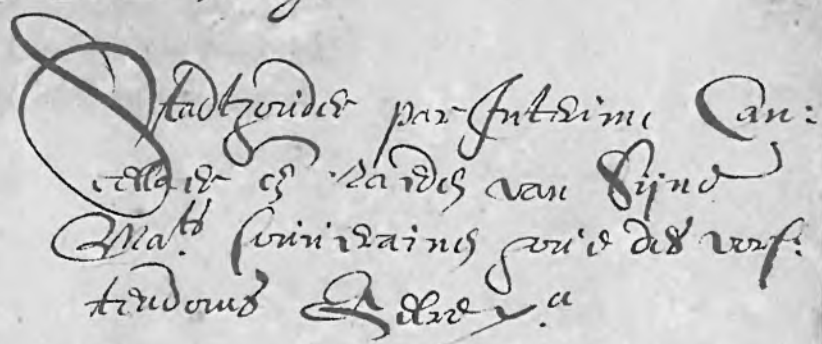 Stadthouder par Interim, Can:
cellier en Raeden van Sijne
Ma.ts souverainen hove des vors:
tendoms Gelre &.a